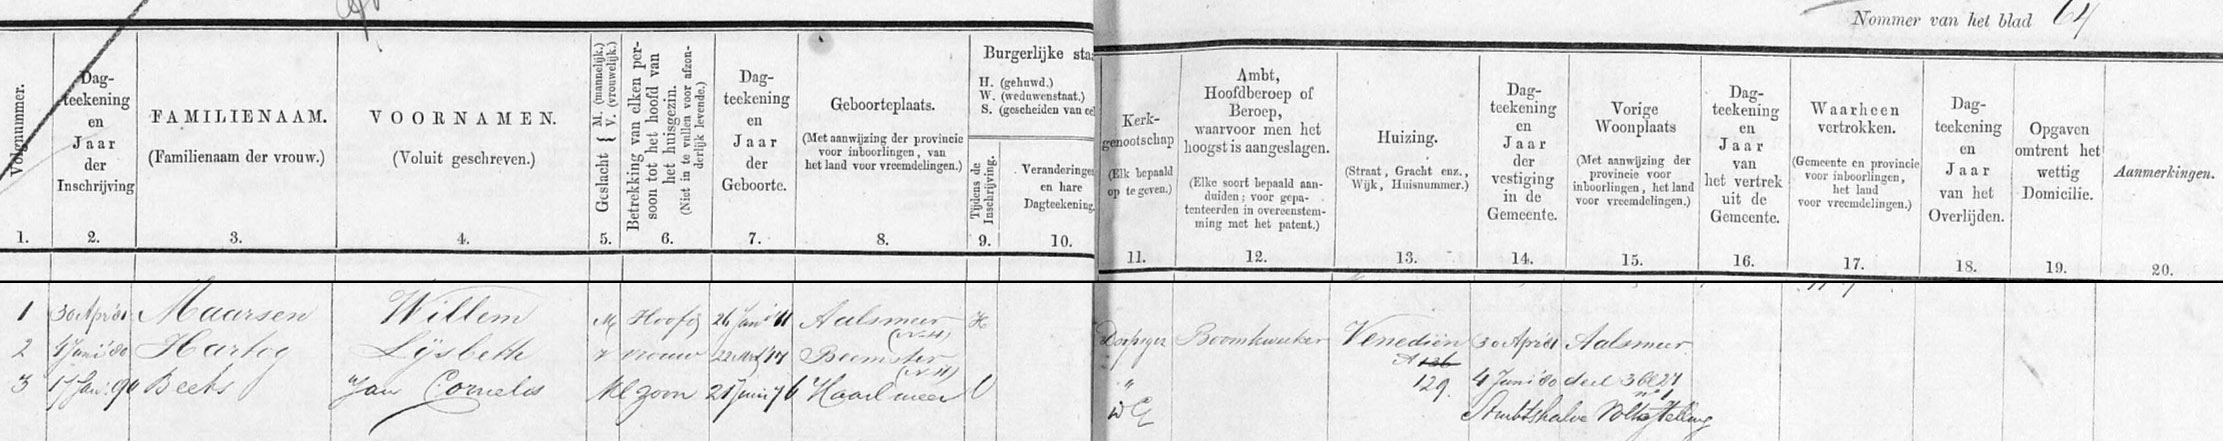 Nommer van het blad 64
Volgnummer.
Dag-
teekening
en
Jaar
der
Inschrijving
FAMILIENAAM.
(Familienaam der vrouw.)
VOORNAMEN.
(Voluit geschreven.)
Geslacht { M. (mannelijk.)
V. (vrouwelijk.)
Betrekking van elken per-
soon tot het hoofd van
het huisgezin.
(Niet in te vullen voor afzon-
derlijk levende.)
Dag-
teekening
en
Jaar
der
Geboorte.
Geboorteplaats.
(Met aanwijzing der provincie
voor inboorlingen, van
het land voor vreemdelingen.)
Burgerlijke sta
H. (gehuwd.)
W. (weduwenstaat.)
S. (gescheiden van ec
Tijdens de
Inschrijving.
Veranderingen
en hare
Dagteekening.
Kerk-
genootschap
(Elk bepaald
op te geven.)
Ambt,
Hoofdberoep of
Beroep,
waarvoor men het
hoogst is aangeslagen.
(Elke soort bepaald aan-
duiden; voor gepa-
tenteerden in overeenstem-
ming met het patent.)
Huizing.
(Straat, Gracht enz.,
Wijk, Huisnummer.)
Dag-
teekening
en
Jaar
der
vestiging
in de
Gemeente.
Vorige
Woonplaats
(Met aanwijzing der
provincie voor
inboorlingen, het land
voor vreemdelingen.)
Dag-
teekening
en
Jaar
van
het vertrek
uit de
Gemeente.
Waarheen
vertrokken.
(Gemeente en provincie
voor inboorlingen,
het land
voor vreemdelingen.)
Dag-
teekening
en
Jaar
van het
Overlijden.
Opgaven
omtrent het
wettig
Domicilie.
Aanmerkingen.
1. 2. 3. 4. 5. 6. 7. 8. 9. 10. 11. 12. 13. 14. 15. 16. 17. 18. 19. 20.
1 30 Apr 81 Maarsen Willem M Hoofd 26 Jan 11 Aalsmeer H Dopsgez Boomkweeker Venediën 30 Apr 81 Aalsmeer
(N-H) A 136
2 4 Juni 80 Hartog Lijsbeth v vrouw Beemster " 129. 4 Juni 80 deel 3 bl 27
(N-H) no 1
3 17 Jan. 90 Beets Jan Cornelis M zoon 21 Juni 76 Haarl meer O Ambtshalve Volkstelling